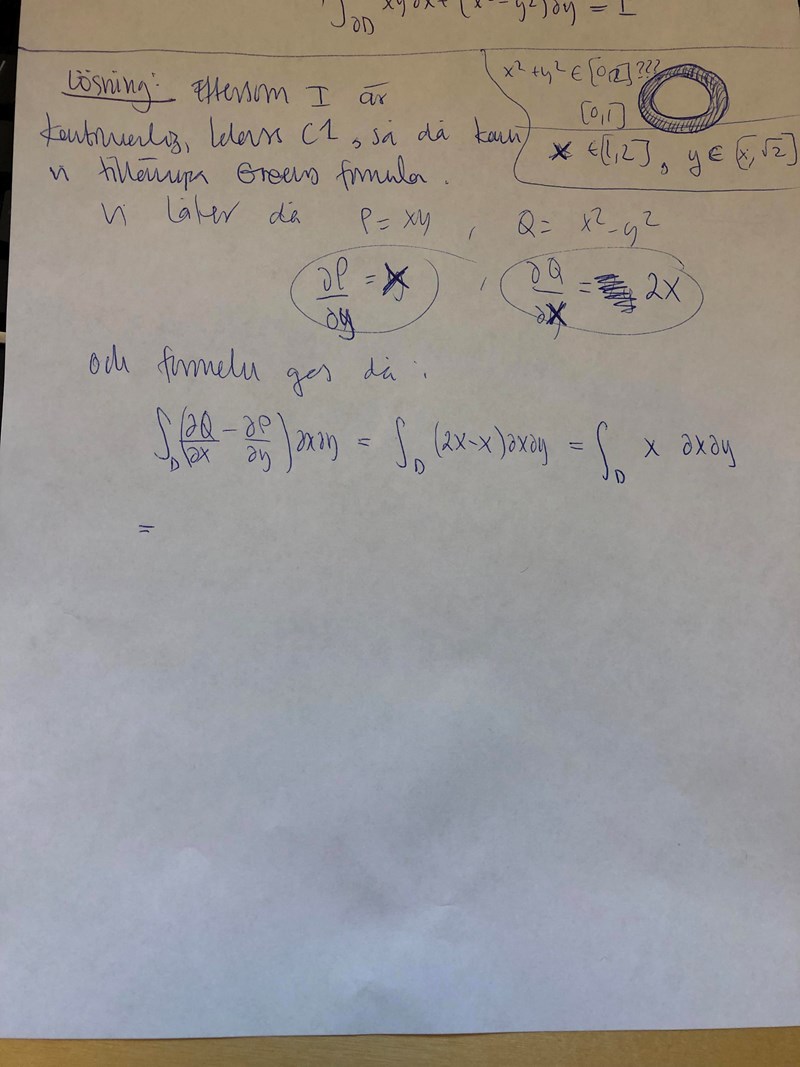 ∫∂D xy∂x + (x²-y²)∂y = I
Lösning: Eftersom I är
kontinuerlig, klass C1, så då kan
vi tillämpa Greens formula.
x²+y² ∈ [0,2]???
[0,1]
x ∈ [1,2], y ∈ [x,√2]
Vi låter då P = xy, Q = x²-y²
∂P/∂y = x, ∂Q/∂x = 2x
och formeln ges då:
∫D (∂Q/∂x - ∂P/∂y) ∂x∂y = ∫D (2x-x)∂x∂y = ∫D x ∂x∂y
=